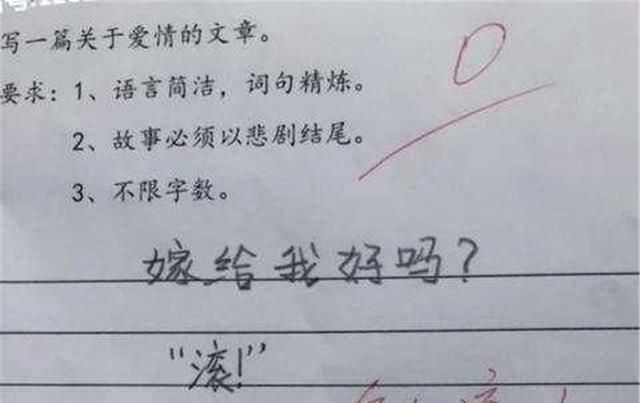 写一篇关于爱情的文章。
要求：1、语言简洁，词句精炼。
2、故事必须以悲剧结尾。
3、不限字数。
0
嫁给我好吗？
“滚！”